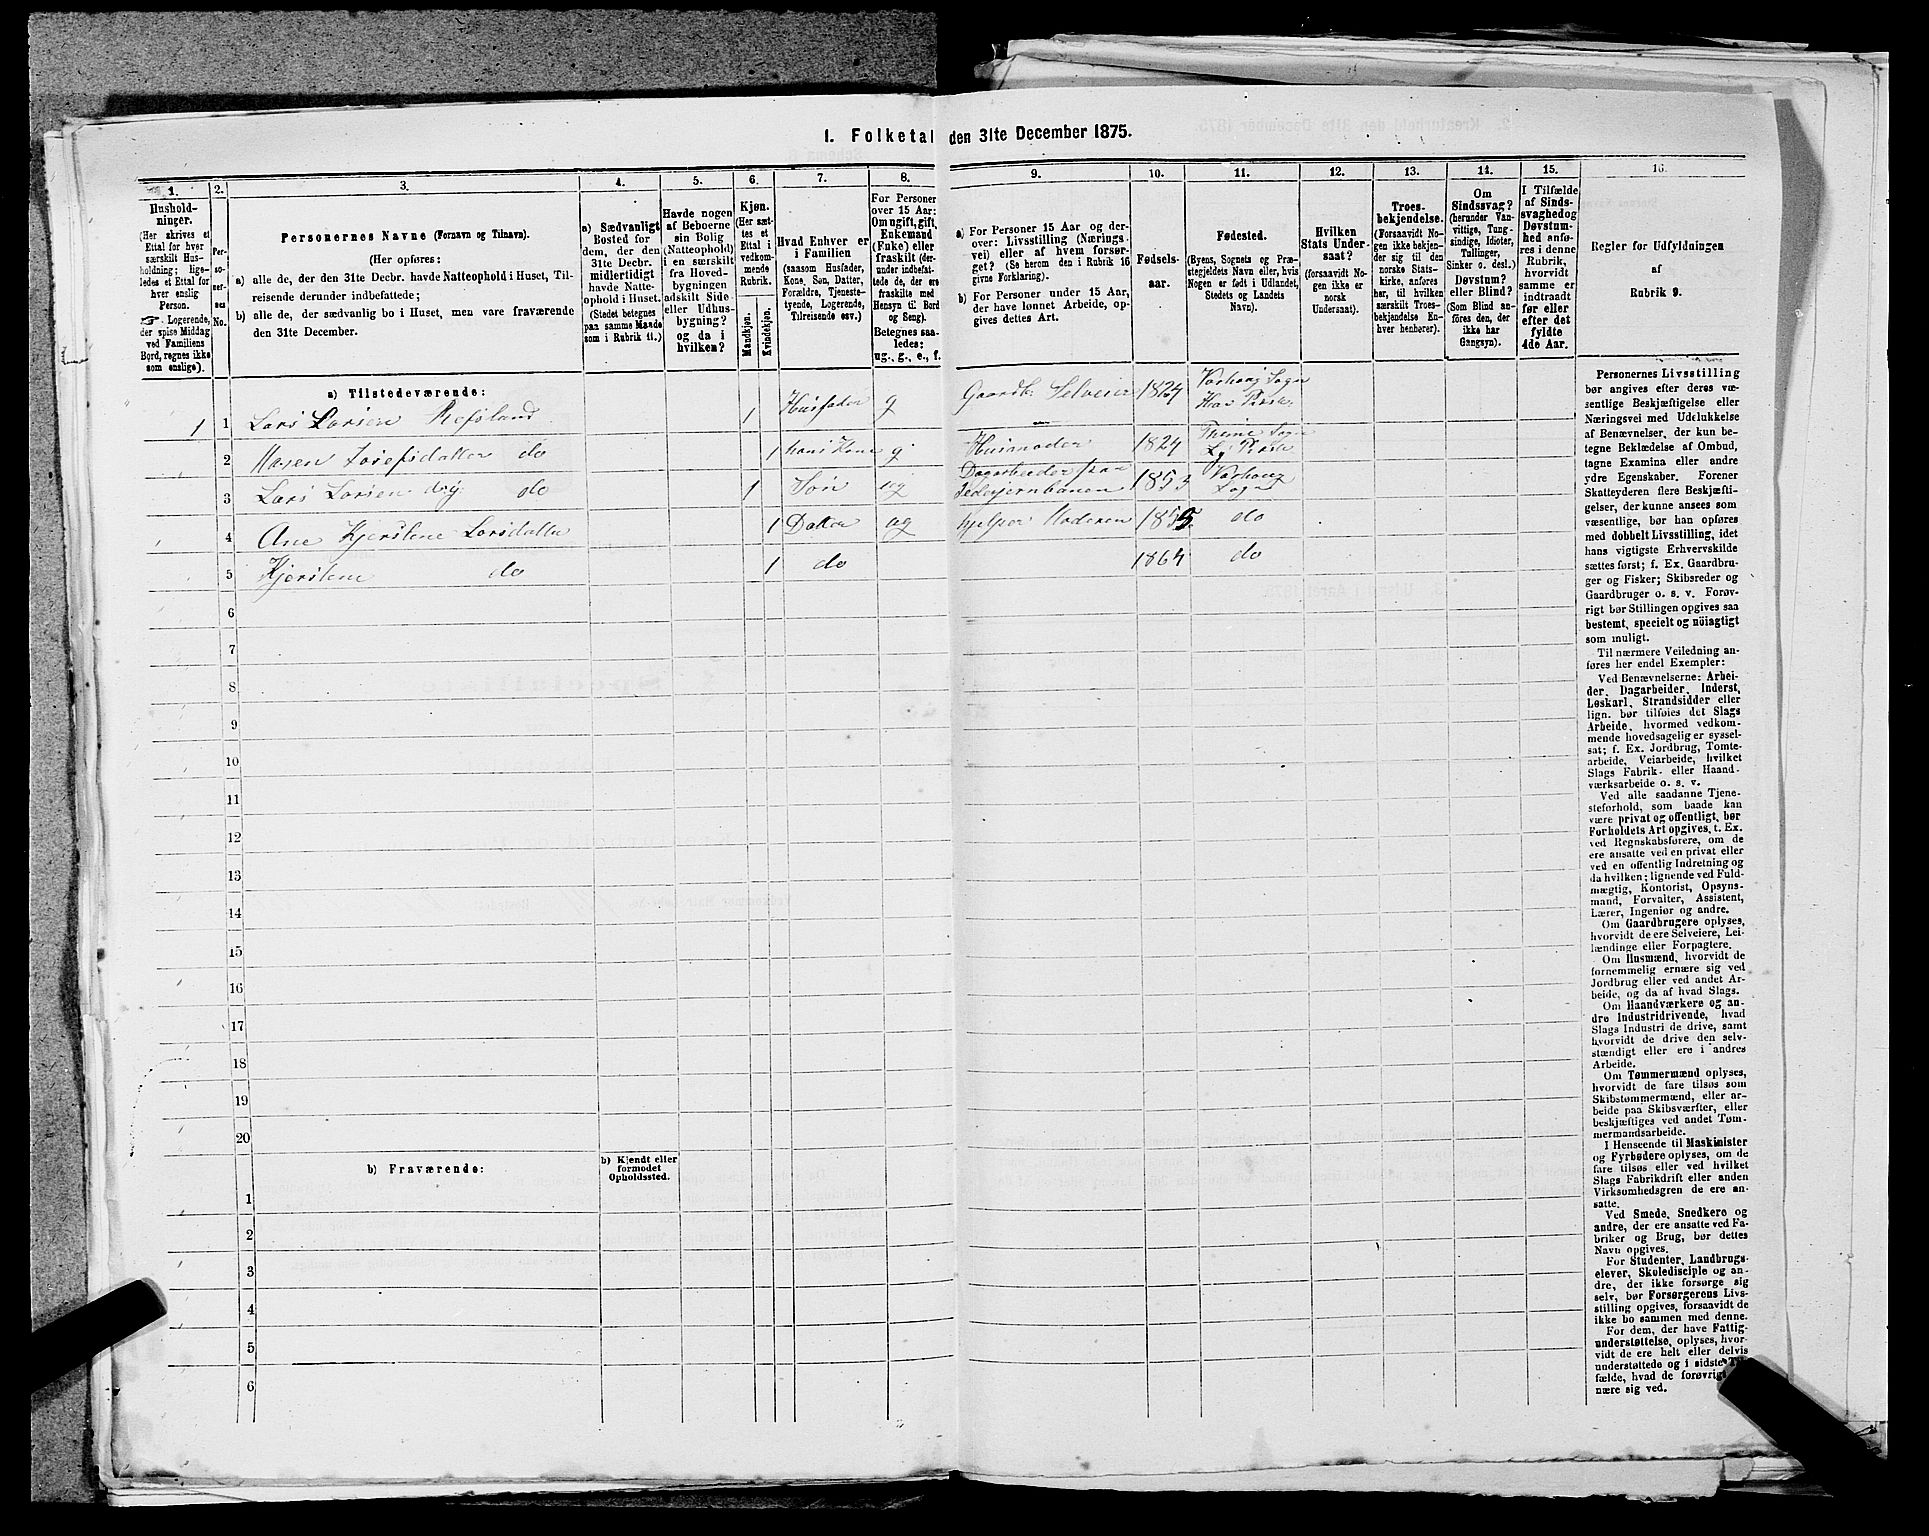 1. Folketal den 31te December 1875.
1. 2. 3. 4. 5. 6. 7. 8. 9. 10. 11. 12. 13. 14. 15. 16.
Hushold-
ninger.
(Her skrives et
Ettal for hver
særskilt Hus-
holdning; lige-
ledes et Ettal for
hver enslig
Person.
☞ Logerende,
der spise Middag
ved Familiens
Bord, regnes ikke
som enslige).
Per-
so-
ner-
nes
No.
Personernes Navne (Fornavn og Tilnavn).
(Her opføres:
a) alle de, der den 31te Decbr. havde Natteophold i Huset, Til-
reisende derunder indbefattede;
b) alle de, der sædvanlig bo i Huset, men vare fraværende
den 31te December.
a) Sædvanligt
Bosted for
dem, der den
31te Decbr.
midlertidigt
havde Natte-
ophold i Huset.
(Stedet betegnes
paa samme Maade
som i Rubrik 11.)
Havde nogen
af Beboerne
sin Bolig
(Natteophold)
i en særskilt
fra Hoved-
bygningen
adskilt Side-
eller Udhus-
bygning?
og da i
hvilken?
Kjøn.
(Her sæt-
tes et
Ettal i
vedkom-
mende
Rubrik.
Mandkjøn.
Kvindekjøn.
Hvad Enhver er
i Familien
(saasom Husfader,
Kone, Søn, Datter,
Forældre, Tjeneste-
tyende, Logerende,
Tilreisende osv.)
For Personer
over 15 Aar:
Om ugift, gift,
Enkemand
(Enke) eller
fraskilt (der-
under indbefat-
tede de, der ere
fraskilte med
Hensyn til Bord
og Seng).
Betegnes saa-
ledes:
ug., g., e., f.
a) For Personer 15 Aar og der-
over: Livsstilling (Nærings-
vei) eller af hvem forsør-
get? (Se herom den i Rubrik 16
givne Forklaring).
b) For Personer under 15 Aar,
der have lønnet Arbeide, op-
gives dettes Art.
Fødsels-
aar.
Fødested.
(Byens, Sognets og Præ-
stegjeldets Navn eller, hvis
Nogen er født i Udlandet,
Stedets og Landets
Navn).
Hvilken
Stats Under-
saat?
(forsaavidt No-
gen ikke er
norsk
Undersaat).
Troes-
bekjendelse.
(Forsaavidt No-
gen ikke bekjen-
der sig til den
norske Stats-
kirke, anføres
her, til hvilken
særskilt Troes-
bekjendelse En-
hver henhører).
Om
Sindssvag?
(herunder Van-
vittige, Tung-
sindige, Idioter,
Tullinger,
Sinker o. desl.)
Døvstum?
eller Blind?
(Som Blind an-
føres den, der
ikke har
Gangsyn).
I Tilfælde
af Sinds-
svaghed og
Døvstum-
hed anfø-
res i denne
Rubrik,
hvorvidt
samme er
indtraadt
før eller
efter det
fyldte
4de Aar.
Regler for Udfyldningen
af
Rubrik 9.
a) Tilstedeværende:
1 1 Lars Larsen Refsland 1 Husfader g Gaardb: Selveier 1824 Varhoug Sogn
2 do 1 hans Kone g Husmoder 1824 Thime Sogn
3 Lars Larsen do 1 Søn ug Dagarbeider paa Varhoug
Jederjernbanen 1853 Sogn
4 Ane Kjerstene Larsdatter 1 Datter ug hjelper Moderen 1855 do
5 Kjerstene do 1 do 1864 do
6
7
8
9
10
11
12
13
14
15
16
17
18
19
20
b) Fraværende:
b) Kjendt eller
formodet
Opholdssted.
1
2
3
4
5
6
Personernes Livsstilling
bør angives efter deres væ-
sentlige Beskjæftigelse eller
Næringsvei med Udelukkelse
af Benævnelser, der kun be-
tegne Beklædelse af Ombud,
tagne Examina eller andre
ydre Egenskaber. Forener
Skatteyderen flere Beskjæfti-
gelser, der kunne ansees som
væsentlige, bør han opføres
med dobbelt Livsstilling, idet
hans vigtigste Erhvervskilde
sættes først; f. Ex. Gaardbru-
ger og Fisker; Skibsreder og
Gaardbruger o. s. v. Forøv-
rigt bør Stillingen opgives saa
bestemt, specielt og nöiagtigt
som muligt.
Til nærmere Veiledning an-
føres her endel Exempler:
Ved Benævnelserne: Arbei-
der, Dagarbeider, Inderst,
Løskarl, Strandsidder eller
lign. bør tilføies det Slags
Arbeide, hvormed vedkom-
mende hovedsagelig er syssel-
sat; f. Ex. Jordbrug, Tomte-
arbeide, Veiarbeide, hvilket
Slags Fabrik- eller Haand-
værksarbeide o. s. v.
Ved alle saadanne Tjene-
steforhold, som baade kan
være privat og offentligt, bør
Forholdets Art opgives, t. Ex.
ved Regnskabsførere, om de
ere ansatte ved en privat eller
ved en offentlig Indretning og
da hvilken; lignende ved Fuld-
mægtig, Kontorist, Opsyns-
mand, Forvalter, Assistent,
Lærer, Ingeniør og andre.
Om Gaardbrugere oplyses,
hvorvidt de ere Selveiere, Lei-
lændinge eller Forpagtere.
Om Husmænd, hvorvidt de
fornemmelig ernære sig ved
Jordbrug eller ved andet Ar-
beide, og da af hvad Slags.
Om Haandværkere og an-
dre Industridrivende, hvad
Slags Industri de drive, samt
hvorvidt de drive den selv-
stændigt eller ere i andres
Arbeide.
Om Tømmermænd oplyses,
hvorvidt de fare tilsøs som
Skibstømmermænd, eller ar-
beide paa Skibsværfter, eller
beskjæftiges ved andet Tøm-
mermandsarbeide.
I Henseende til Maskinister
og Fyrbødere oplyses, om de
fare tilsøs eller ved hvilket
Slags Fabrikdrift eller anden
Virksomhedsgren de ere an-
satte.
Ved Smede, Snedkere og
andre, der ere ansatte ved Fa-
briker og Brug, bør dettes
Navn opgives.
For Studenter, Landbrugs-
elever, Skoledisciple og an-
dre, der ikke forsørge sig
selv, bør Forsørgerens Livs-
stilling opgives, forsaavidt de
ikke bo sammen med denne.
For dem, der have Fattig-
understøttelse, oplyses, hvor-
vidt de ere helt eller delvis
understøttede og i sidste
fælde, hvad de forøvrigt
nære sig ved.